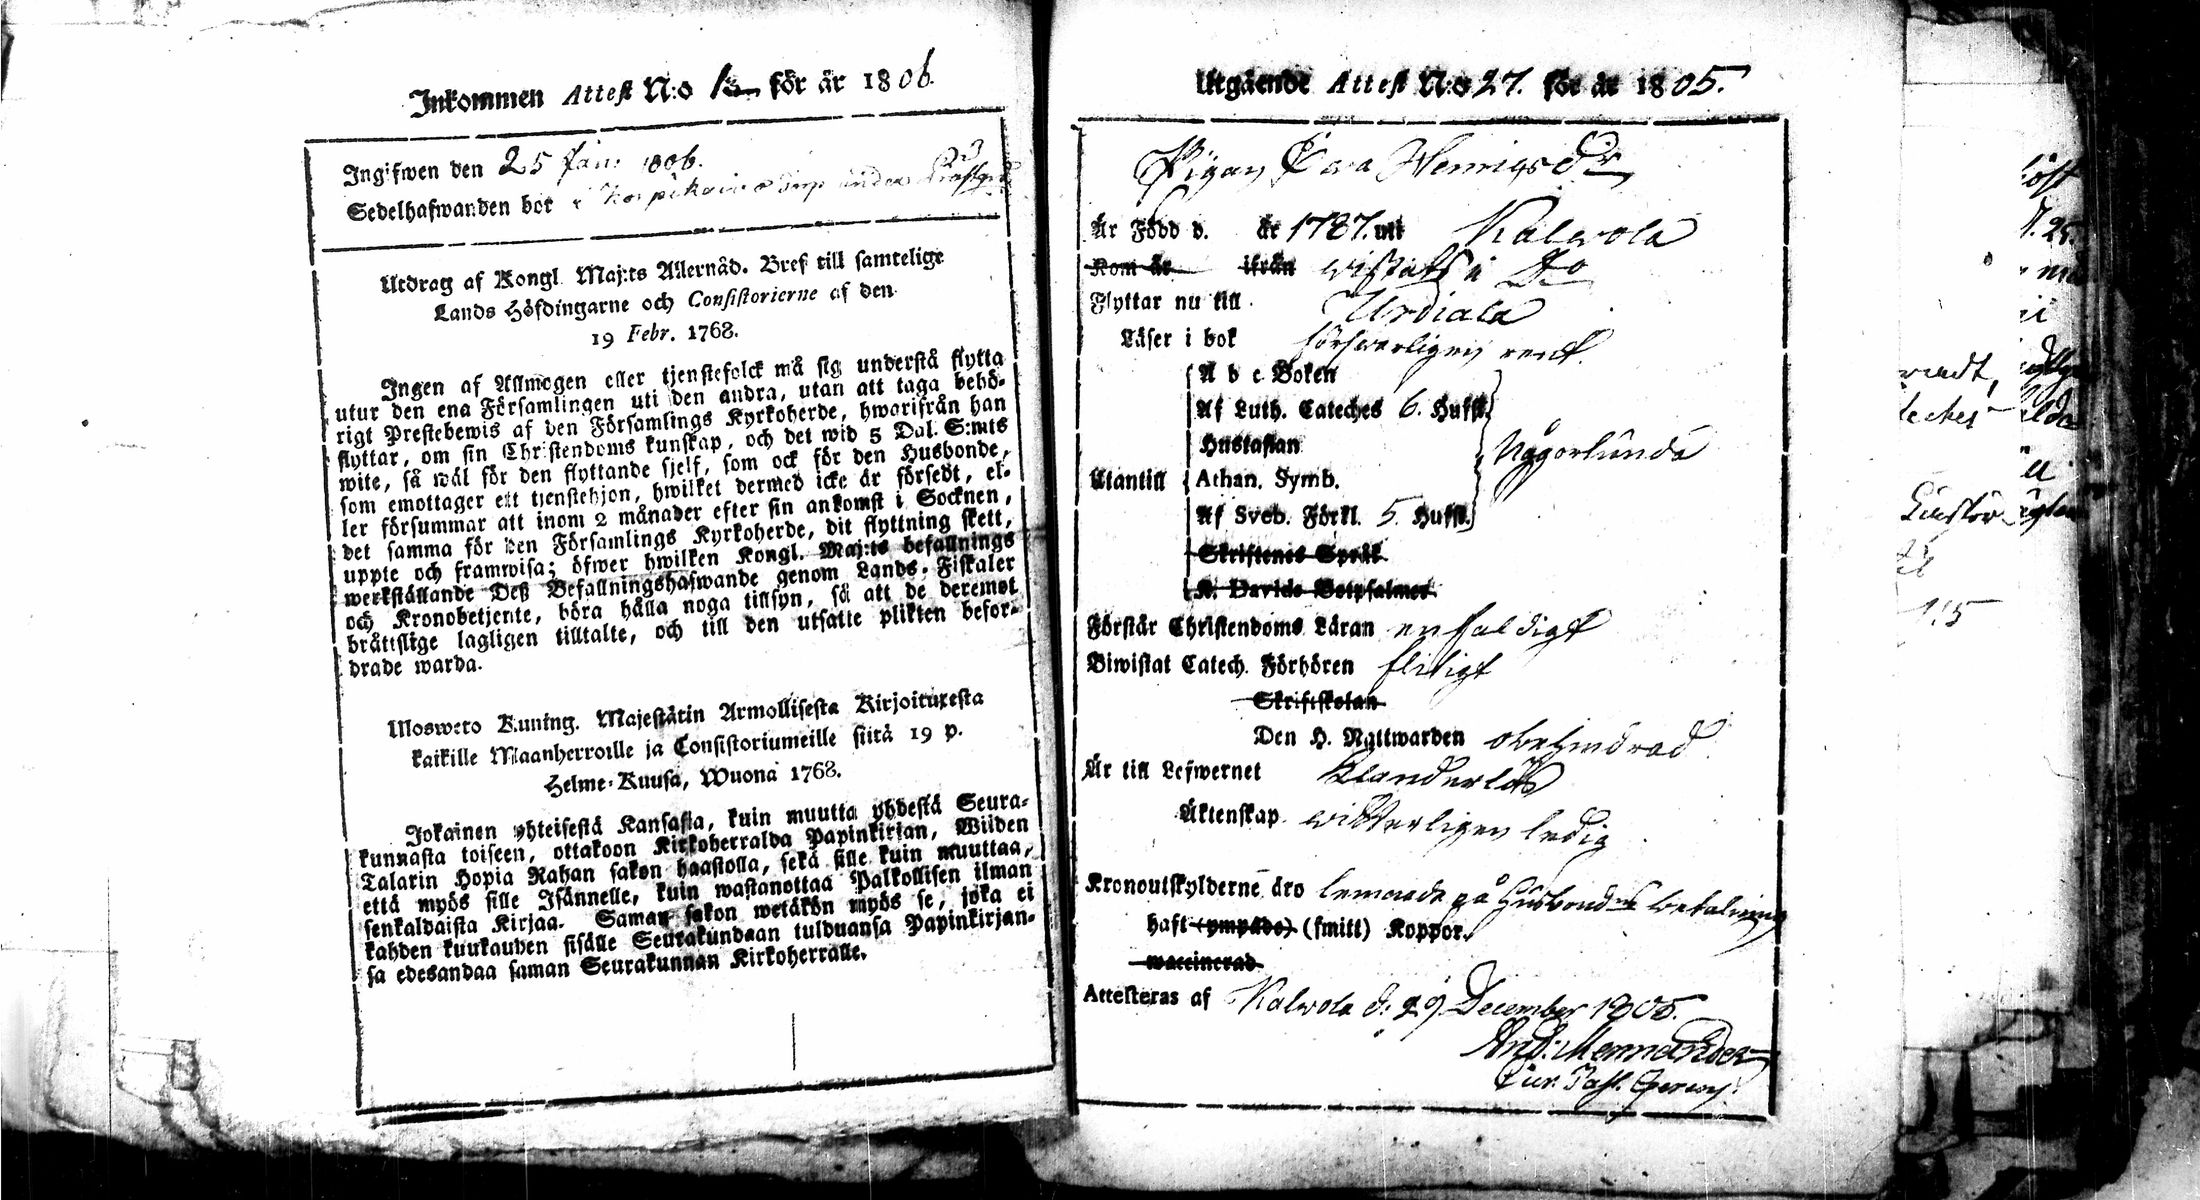 Inkommen Attest N:o för år 1806.
Ingifwen den 25 Jan: 1806.
Sedelhafwanden bor i under
Utdrag af Kongl. Maj:ts Allernåd. Bref till samtelige
Lands Höfdingarne och Consistorierne af den
19 Febr. 1768.
Ingen af Allmogen eller tjenstefolck må sig understå flytta
utur den ena Församlingen uti den andra, utan att taga behö-
rigt Prestebewis af den Församlings Kyrkoherde, hwarifrån han
flyttar, om sin Christendoms kunskap, och det wid 5 Dal. S:mts
wite, så wäl för den flyttande sjelf, som ock för den Husbonde,
som emottager ett tjenstehjon, hwilket dermed icke är försedt, el-
ler försummar att inom 2 månader efter sin ankomst i Socknen,
det samma för den Församlings Kyrkoherde, dit flyttning skett,
uppte och framwisa; öfwer hwilken Kongl. Maj:ts befallnings
werkställande Deß Befallningshafwande genom Lands-Fiskaler
och Kronobetjente, böra hålla noga tillsyn, så att de deremot
bråttslige lagligen tilltalte, och till den utsatte plikten befor-
drade warda.
Ulosweto Kuning. Majestätin Armollisesta Kirjoituxesta
kaikille Maanherroille ja Consistoriumeille siitä 19 p.
Helme-Kuusa, Wuona 1768.
Jokainen yhteisestä Kansasta, kuin muutta yhdestä Seura-
kunnasta toiseen, ottakoon Kirkoherralda Papinkirjan, Wiiden
Talarin Hopia Rahan sakon haastolla, sekä sille kuin muuttaa,
että myös sille Isännelle, kuin wastanottaa Palkollisen ilman
senkaldaista Kirjaa. Saman sakon wetäkön myös se, joka ei
kahden kuukauden sisälle Seurakundaan tulduansa Papinkirjan-
sa edesandaa saman Seurakunnan Kirkoherralle.
Utgående Attest N:o 27. för år 1805.
Pigan Ewa Henricsdr
Är Född d. år 1787. uti Kalwola
Kom år ifrån wistats i Do
Flyttar nu till Urdiala
Läser i bok förswarligen rent.
A b c Boken
Af Luth. Cateches 6. Hufst.
Hustaflan
Någorlunda
Utantill Athan. Symb.
Af Sveb. Förkl. 5. Hufst.
Skriftenes Språk
K. Davids Botpsalmer
Förstår Christendoms Läran enfaldigt
Biwistat Catech. Förhören flitigt
Skriftskolan
Den H. Nattwarden obehindrad
Är till Lefwernet klanderlös
Äktenskap witterligen ledig
Kronoutskylderne äro lemnade på Husbondens betalning
haft (ympade) (smitt) Koppor.
waccinerad
Attesteras af Kalwola d. 29 December 1805.
And: Mennander